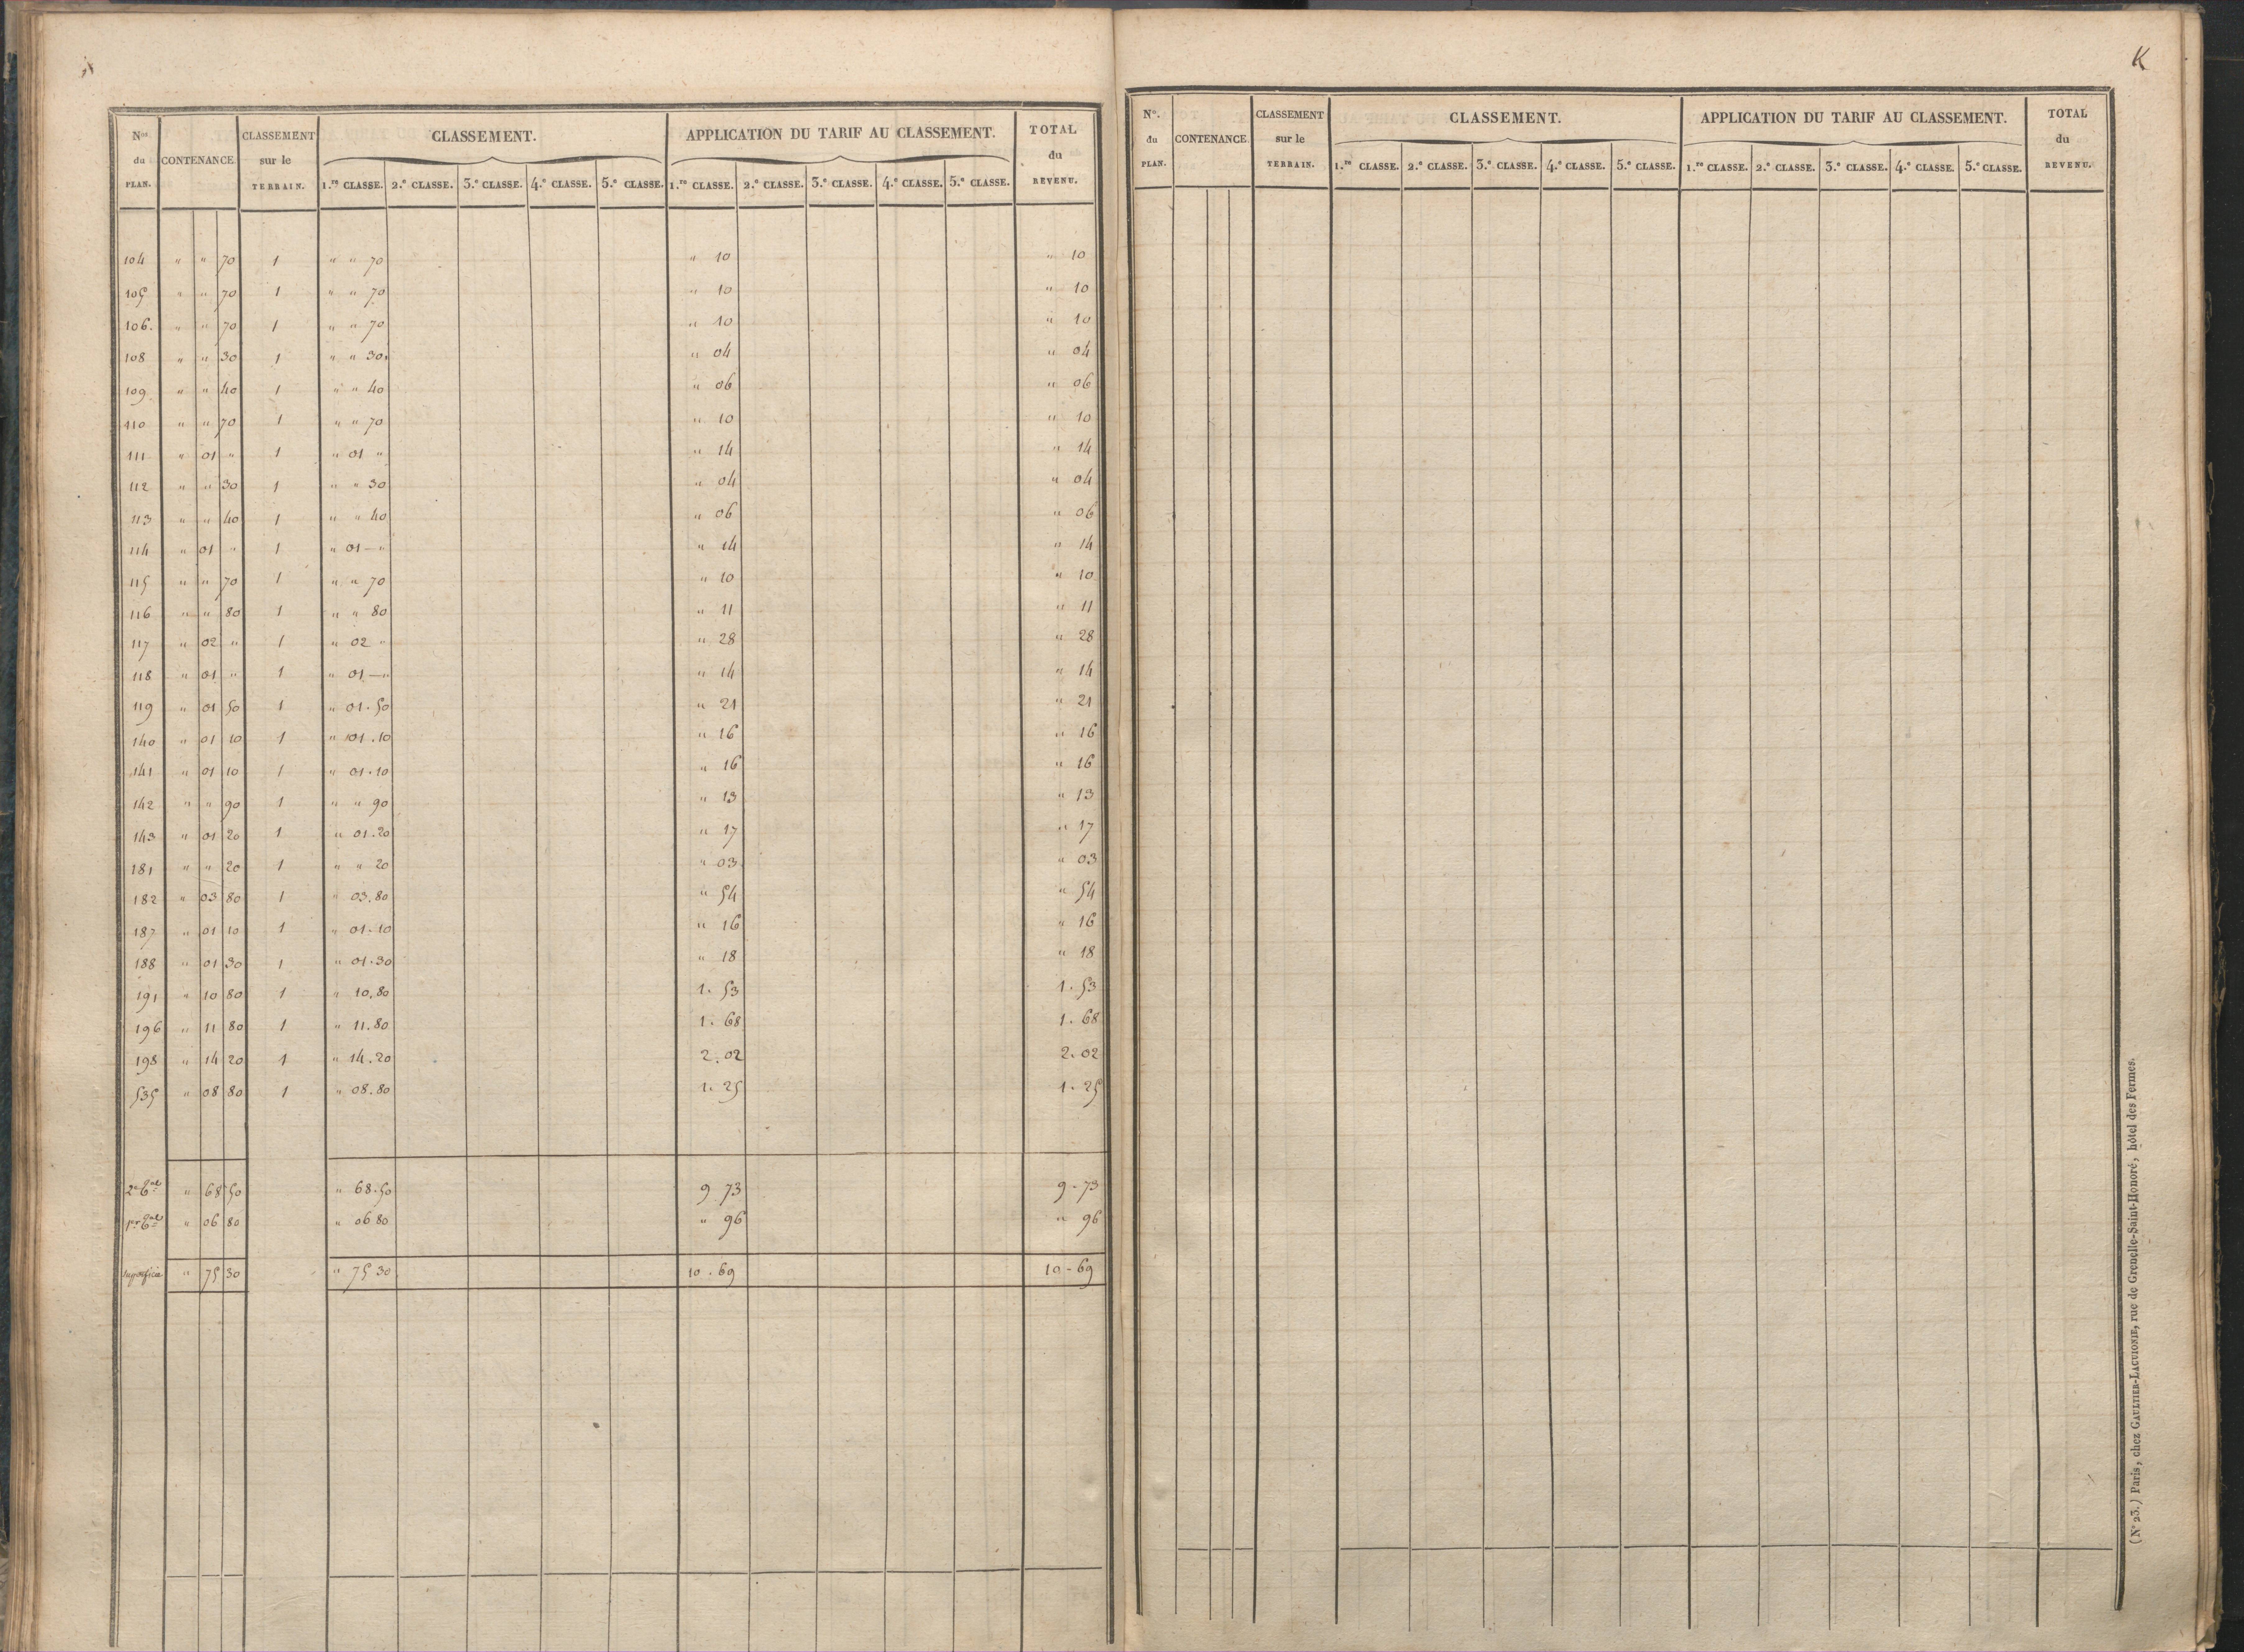 Nos. du PLAN. CONTENANCE. CLASSEMENT sur le TERRAIN. CLASSEMENT. APPLICATION DU TARIF AU CLASSEMENT. TOTAL du REVENU.
1.re CLASSE. 2.e CLASSE. 3.e CLASSE. 4.e CLASSE. 5.e CLASSE. 1.re CLASSE. 2.e CLASSE. 3.e CLASSE. 4.e CLASSE. 5.e CLASSE.
104 " " 70 1 " " 70 " 10 " 10
105 " " 70 1 " " 70 " 10 " 10
106. " " 70 1 " " 70 " 10 " 10
108 " " 30 1 " " 30 " 04 " 04
109 " " 40 1 " " 40 " 06 " 06
110 " " 70 1 " " 70 " 10 " 10
111 " 01 " 1 " 01 " " 14 " 14
112 " " 30 1 " " 30 " 04 " 04
113 " " 40 1 " " 40 " 06 " 06
114 " 01 " 1 " 01 — " " 14 " 14
115 " " 70 1 " " 70 " 10 " 10
116 " " 80 1 " " 80 " 11 " 11
117 " 02 " 1 " 02 " " 28 " 28
118 " 01 " 1 " 01 — " " 14 " 14
119 " 01 50 1 " 01.50 " 21 " 21
140 " 01 10 1 " 01.10 " 16 " 16
141 " 01 10 1 " 01.10 " 16 " 16
142 " " 90 1 " " 90 " 13 " 13
143 " 01 20 1 " 01.20 " 17 " 17
181 " " 20 1 " " 20 " 03 " 03
182 " 03 80 1 " 03.80 " 54 " 54
187 " 01 10 1 " 01.10 " 16 " 16
188 " 01 30 1 " 01.30 " 18 " 18
191 " 10 80 1 " 10.80 1.53 1.53
196 " 11 80 1 " 11.80 1.68 1.68
198 " 14 20 1 " 14.20 2.02 2.02
535 " 08 80 1 " 08.80 1.25 1.25
" 68 50 " 68.50 9 73 9-73
" 06 80 " 06 80 " 96 " 96
superficie " 75 30 " 75 30 10.69 10-69
K
No. du PLAN. CONTENANCE. CLASSEMENT sur le TERRAIN. CLASSEMENT. APPLICATION DU TARIF AU CLASSEMENT. TOTAL du REVENU.
1.re CLASSE. 2.e CLASSE. 3.e CLASSE. 4.e CLASSE. 5.e CLASSE. 1.re CLASSE. 2.e CLASSE. 3.e CLASSE. 4.e CLASSE. 5.e CLASSE.
(N° 23.) Paris, chez GAULTIER-LAGUIONIE, rue de Grenelle-Saint-Honoré, hôtel des Fermes.